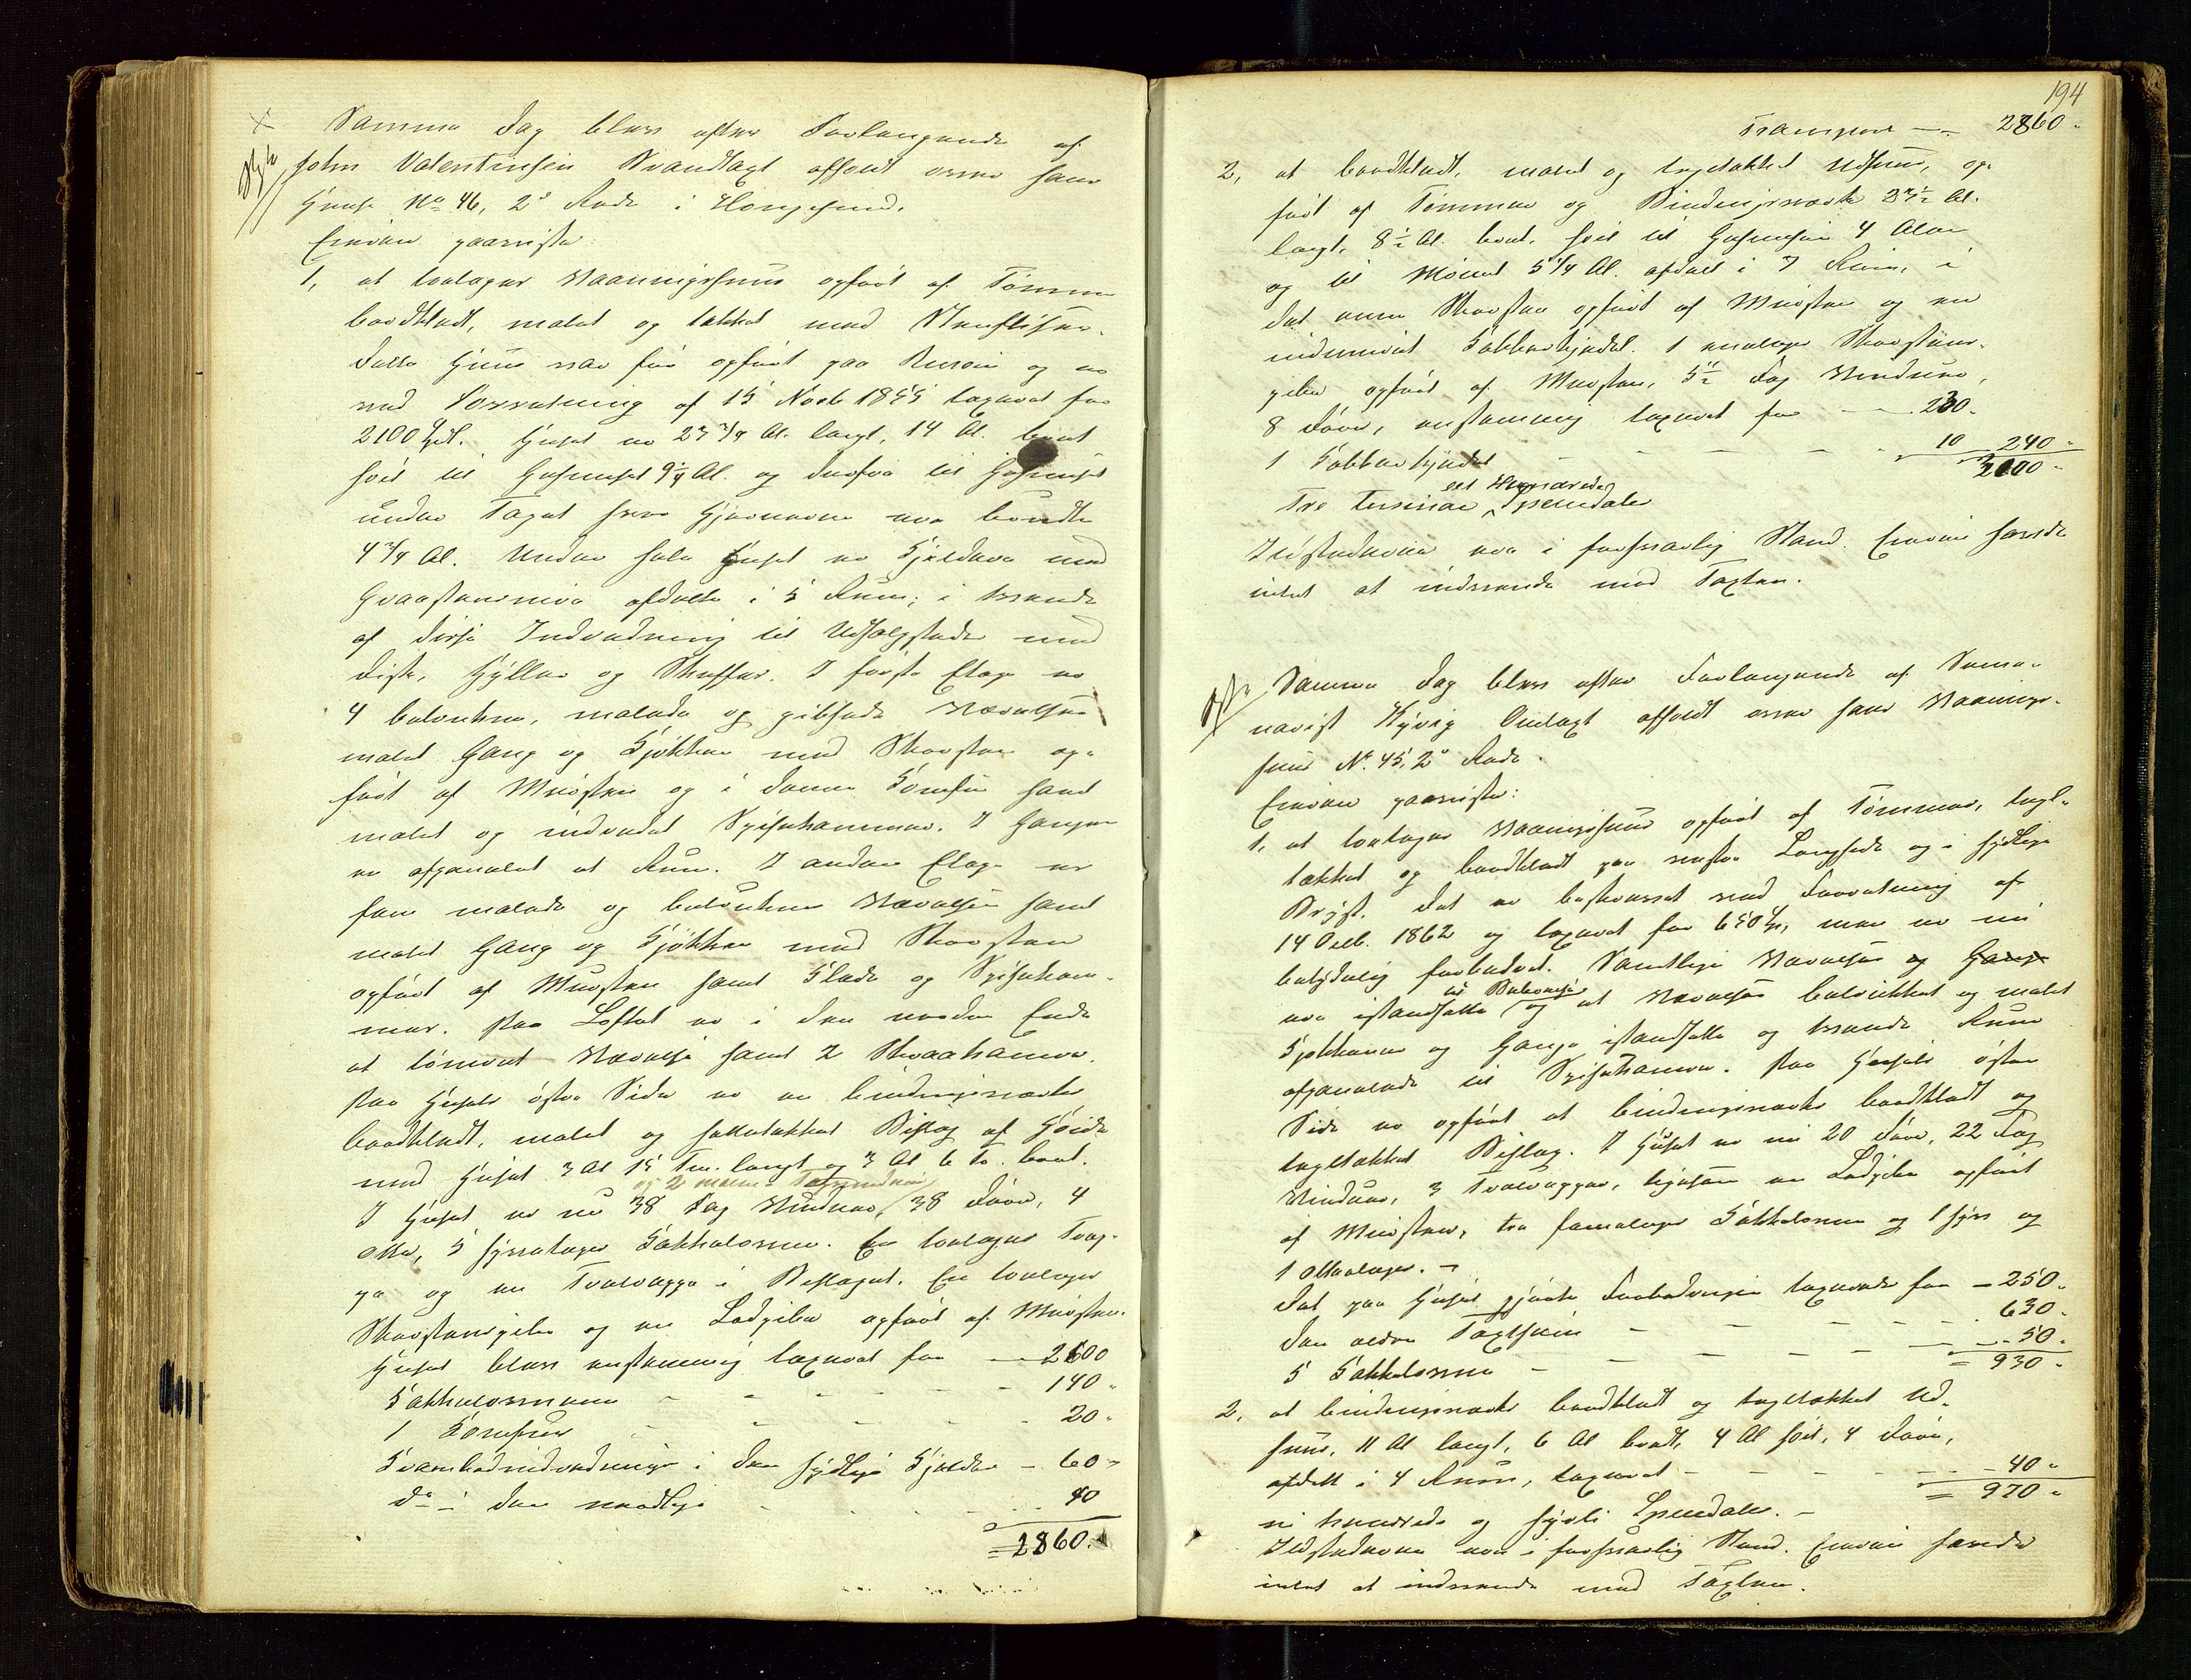 Samme Dag blev efter Forlangende af
John Valentinsen Brandtaxt afholdt over hans
Huus No 46, 2de Rode i Haugesund.
Eieren paaviste:
1, et toetages Vaaningshuus opført af Tømmer
bordklædt, malet og tækket med Skiffliser.
Dette Huus var før opført paa Rusøen og er
ved Forretning af 15 Novb 1855 taxeret for
2100 Spd. Huset er 23 3/4 Al. langt, 14 Al. bredt
høit til Gesimset 9 1/4 Al. og derfra til Gesimset
under Taget hvor Hjørnerne ere brudte
4 3/4 Al. Under hele Huset er Kjeldere med
Graastensmuur afdelte i 5 Rum; i tvende
af disse Indredning til Udsalgssteder med
Diske, Hylder og Skuffer. I første Etage er
4 betrukne, malede og gibsede Værelser
malet Gang og Kjøkken med Skorsten op-
ført af Muursten og i denne Komfur samt
malet og indredet Spisekammer. I Gangen
er afpanelet et Rum. I anden Etage er
fem malede og betrukne Værelser samt
malet Gang og Kjøkken med Skorsten
opført af Muursten samt Klæde og Spisekam-
mer. Paa Loftet er i den nordre Ende
et tømret Værelse samt 2 Skraakamre.
Paa Husets østre Side er en bindingsværks
bordklædt, malet og helletækket Bislag af Høide
med Huset 3 Al 15 Tm. langt og 3 Al 6 T. bredt.
og 2 malede
I Huset er nu 38 Fag Vinduer, 38 Døre, 4
5 fyretages Kakkelovne. En toetages Trap-
pe og en Tretrappe i Bislaget. En toetages
Skorstenspibe og en Lodpibe opført af Muursten.
Huset blev enstemmig taxeret for — 2600
Kakkelovnene - - - - - 140 "
1 Komfur - - - - 20 "
Krambodindredninger i den sydlige Kjelder - 60 "
Do i den nordlige - - - 40
= 2860.
194
Transport — 2860 "
2, et bordklædt, malet og tegltækket Udhuus, op-
ført af Tømmer og Bindingsværk 23 1/2 Al.
langt, 8 1/2 Al. bredt, høit til Gesimsen 4 Alen
og til Mønet 5 1/4 Al. afdelt i 7 Rum, i
det ene Skorsten opført af Muursten og en
indmuret Kobberkjedel. 1 eenetages Skorstens-
pibe opført af Muursten, 5 1/2 Fag Vinduer,
8 Døre, enstemmig taxeret for — 230 "
1 Kobberkjedel - - - - 10 240 "
3100 "
et Hundrede
Tre tusinde Speciedaler
Ildstederne ere i forsvarlig Stand. Eieren havde
intet at indvende mod Taxten.
Samme Dag blev efter Forlangende af
Omtaxt afholdt over hans Vaanings-
huus No. 45, 2de Rode.
Eieren paaviste:
1, et toetages Vaaningshuus opført af Tømmer, tegl-
tækket og bordklædt paa vestre Langside og i sydlige
Bryst. Det er beskrevet ved Forretning af
14 Octb. 1862 og taxeret for 650 Spd, men er nu
betydelig forbedret. Samtlige Værelser og Gange
ere istandsatte og et Værelse betrukket og malet
Kjøkkener og Gange istandsatte og tvende Rum
afpanelede til Spisekamre. Paa Husets østre
Side er opført et bindingsværks bordklædt og
tegltækket Bislag. I Huset er nu 20 Døre, 22 Fag
Vinduer, 3 Tretrapper, ligesom en Lodpibe opført
af Muursten, tre femetages Kakkelovne og 1 fyr og
1 otteetages. -
Det paa Huset gjorte Forbedringer taxerede for — 250 "
Den ældre Taxtsum - - - - 630 "
5 Kakkelovne - - - - 50 "
= 930 "
2, et bindingsværks bordklædt og tegltækket Ud-
huus, 11 Al langt, 6 Al bredt, 4 Al høit, 4 Døre,
afdelt i 4 Rum, taxeret - - - - 40 "
= 970 "
ni hundrede og sytti Speciedaler. -
Ildstederne ere i forsvarlig Stand. Eieren havde
intet at indvende mod Taxten.